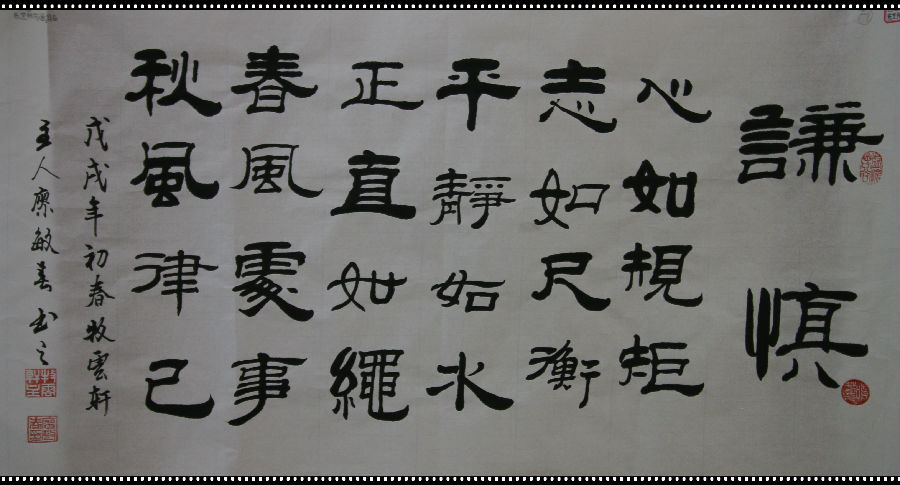 謙慎
心如規矩
志如尺衡
平靜如水
正直如繩
春風處事
秋風律己
戊戌年初春牧雲軒
主人廖敏善书之